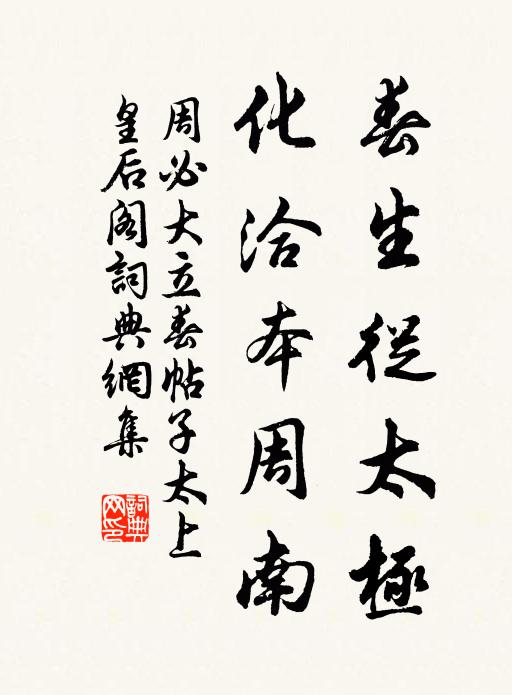 春生從太極
化洽本周南
周必大立春帖子太上
皇后閣詞典網集
詞典网印